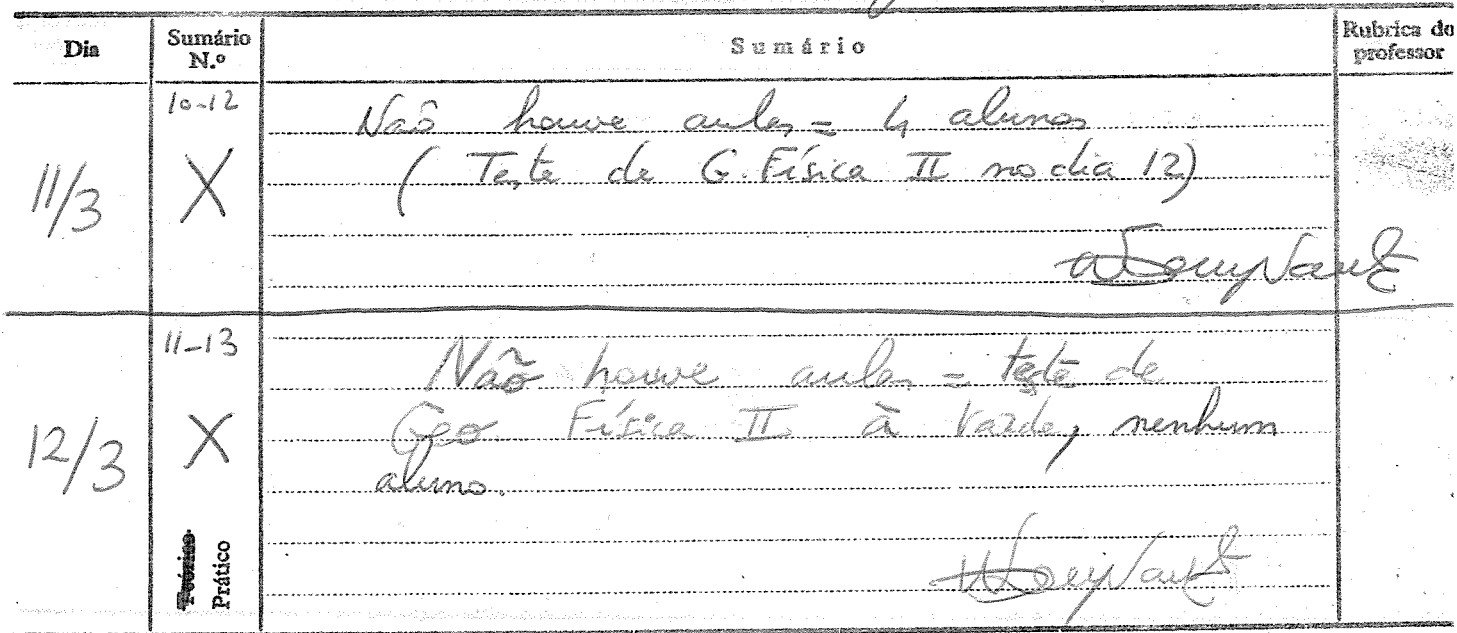 Dia
Sumário N.º
Sumário
Rubrica do professor
11/3
10-12
X
Não houve aulas = 4 alunos
(Teste de G. Física II no dia 12)
12/3
11-13
X
Não houve aulas = teste de
Geo Física II à tarde, nenhum
aluno.
Teórico
Prático